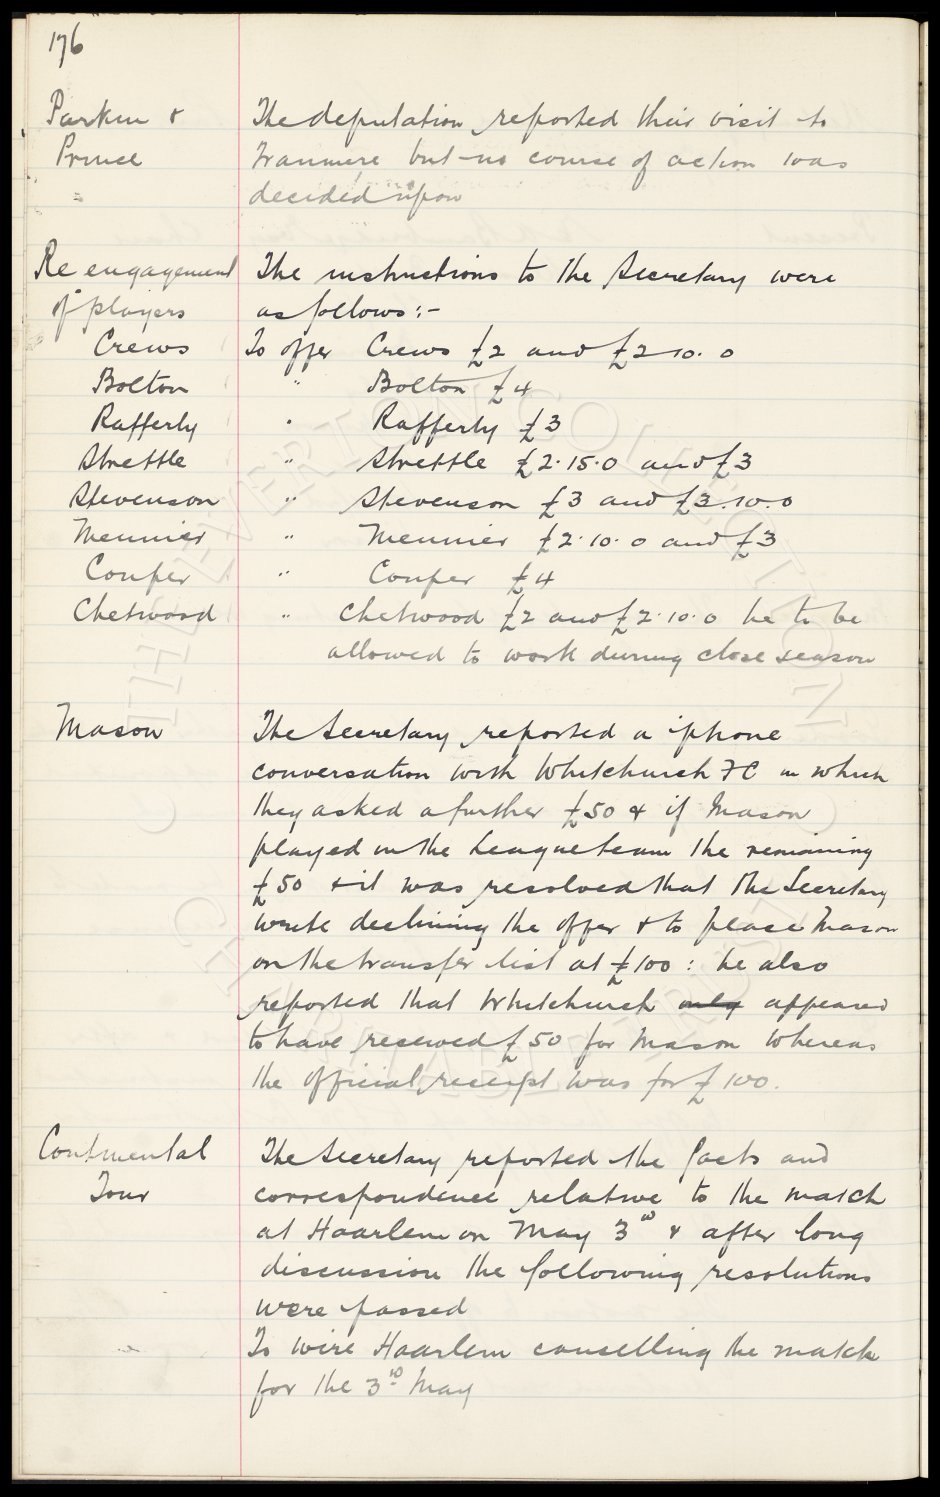 176
Parker &
Prince
The deputation reported their visit to
Tranmere but no course of action was
decided upon
Re engagement
of players
The instructions to the Secretary were
as follows :-
Crews To offer Crews £2 and £2 10. 0
Bolton " Bolton £4
Rafferty " Rafferty £3
Strettle " Strettle £2.15.0 and £3
Stevenson " Stevenson £3 and £3.10.0
Meunier " Meunier £2.10.0 and £3
Couper " Couper £4
Chetwood " Chetwood £2 and £2.10.0 he to be
allowed to work during close season
Mason The Secretary reported a 'phone
conversation with Whitchurch FC in which
they asked a further £50 & if Mason
played in the League team the remaining
£50 & it was resolved that the Secretary
write declining the offer & to place Mason
on the transfer list at £100 : he also
reported that Whitchurch only appeared
to have received £50 for Mason whereas
the official receipt was for £100.
Continental
Tour
The Secretary reported the facts and
correspondence relative to the match
at Haarlem on May 3rd & after long
discussion the following resolutions
were passed
To wire Haarlem cancelling the match
for the 3rd May
THE EVERTON COLLECTION
CHARITABLE TRUST